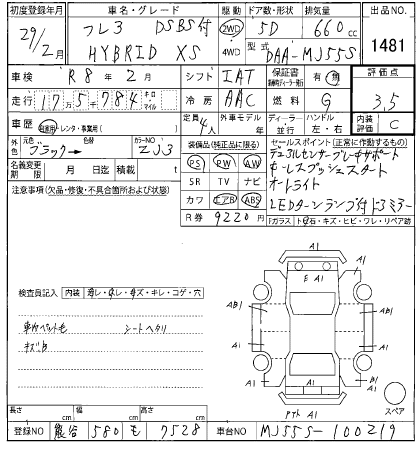 初度登録年月 車名・グレード 駆動 ドア数・形状 排気量 出品NO.
29/2月 フレア DSBS付 2WD 5D 660cc 1481
HYBRID XS 4WD 型式 DAA-MJ55S
車検 R8年2月 シフト IAT 保証書 有 無 評価点
走行 175784 キロ マイル 冷房 AAC 燃料 G 3.5
車歴 自家用・レンタ・事業用( ) 定員 4人 外車モデル 年 ディーラー 並行 ハンドル 左・右 内装評価 C
外色 元色 ブラック→ 色替 カラーNO ZJ3
名義変更期限 月 日迄 積載 t
装備品(純正品に限る)
PS PW AW
SR TV ナビ
カワ エアB ABS
R券 9220円
セールスポイント(正常に作動するもの)
デュアルセンサーブレーキサポート
キーレスプッシュスタート
オートライト
LEDターンランプ付ドアミラー
注意事項(欠品・修復・不具合箇所および状態)
ガラス トビ石・キズ・ヒビ・ワレ・リペア跡
A1
E A1
AB1 AB1
A1 A1
A1 A1
A1
スペア
検査員記入 内装 ヨゴレ・スレ・キズ・キレ・コゲ・穴
車内ペット毛 シートヘタリ
キズB
長さ cm 幅 cm 高さ cm
登録NO 熊谷 580 も 7528 車台NO MJ55S-100219